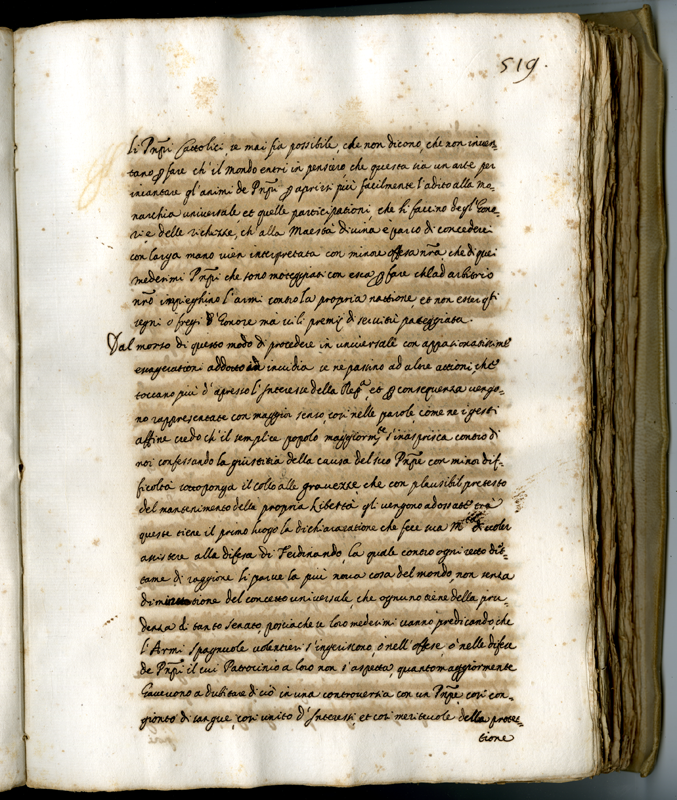 519.
li Pnp̃i Cattolici, se mai sia possibile, che non dicono, che non inuen-
tano p̱ fare ch'il mondo entri in pensiero, che questa sia un arte per
incantare gl'animi de Pnp̃i p̱ aprirsi più facilmente l'adito alla mo-
narchia uniuersale et quelle participationi, che li faccino degl'Hono-
ri, e delle richezze, ch'alla Maestà diuina è parso di concederci
con larga mano uien interpretata con minore offesa nr̃a, che di quei
medesimi Pnp̃i che sono motteggiati con esca p̱ fare ch'ad arbitrio
nr̃o impieghino l'armi contro la propria nattione et non esser q̃ti
segni o fregi d'Honore ma uili premij di seruitù patteggiata.
Dal morso di questo modo di procedere in uniuersale con appassionatissime
essageriationi addotto in inuidia se ne passino ad altre attioni, che
toccano più d'apresso l'Interesse della Rep.ca, et p̱ consequenza uengo-
no rappresentate con maggior senso, così nelle parole, come ne i gesti
affine credo ch'il semplice popolo maggiorm.te s'inasprisca contro di
noi confessando la giustitia della causa del suo Pnp̃e con minor dif-
ficoltà sottoponga il collo alle grauezze, che con plausibil pretesto
del mantenimento della propria Libertà gli uengono adossate trà
queste tiene il primo luogo la dichiaratione che fece sua M.tà di uoler
assistere alla difesa di Ferdinando, la quale contro ogni retto dit-
tame di raggione li parue la più noua cosa del mondo, non senza
diminutione del concetto uniuersale, che ognuno tiene della pru-
denza di tanto Senato, posciache se loro medesimi uanno predicando, che
l'Armi Spagnuole uolentieri s'ingeriscono, ò nell'offese ò nelle difese
de Pnp̃i il cui Patrocinio a loro non s'aspetta, quanto maggiormente
haueuono a dubitare di ciò in una controuersia con un Pnp̃e, così con-
gionto di sangue, così unito d'Interessi, et così meriteuole della protet-
tione